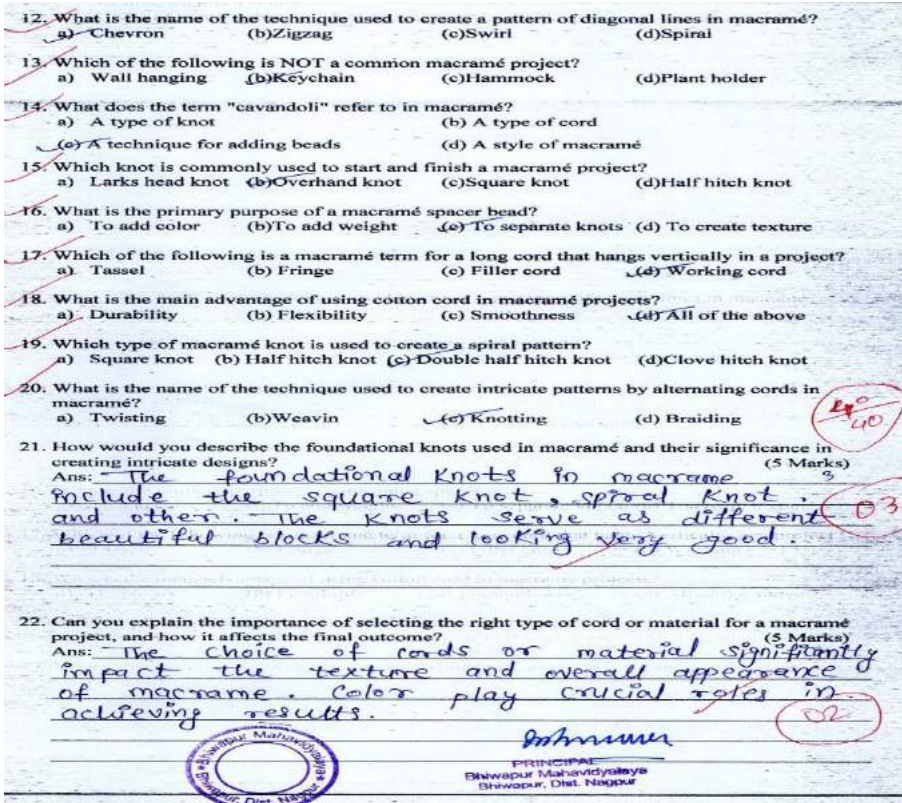 12. What is the name of the technique used to create a pattern of diagonal lines in macramé?
a) Chevron (b)Zigzag (c)Swirl (d)Spiral
13. Which of the following is NOT a common macramé project?
a) Wall hanging (b)Keychain (c)Hammock (d)Plant holder
14. What does the term "cavandoli" refer to in macramé?
a) A type of knot (b) A type of cord
(c) A technique for adding beads (d) A style of macramé
15. Which knot is commonly used to start and finish a macramé project?
a) Larks head knot (b)Overhand knot (c)Square knot (d)Half hitch knot
16. What is the primary purpose of a macramé spacer bead?
a) To add color (b)To add weight (c) To separate knots (d) To create texture
17. Which of the following is a macramé term for a long cord that hangs vertically in a project?
a) Tassel (b) Fringe (c) Filler cord (d) Working cord
18. What is the main advantage of using cotton cord in macramé projects?
a) Durability (b) Flexibility (c) Smoothness (d) All of the above
19. Which type of macramé knot is used to create a spiral pattern?
a) Square knot (b) Half hitch knot (c) Double half hitch knot (d)Clove hitch knot
20. What is the name of the technique used to create intricate patterns by alternating cords in
macramé?
a) Twisting (b)Weavin (c) Knotting (d) Braiding
40
21. How would you describe the foundational knots used in macramé and their significance in
creating intricate designs? (5 Marks)
Ans: The foundational Knots in macrame
include the square Knot, spiral Knot.
and other. The Knots serve as different
03
beautiful blocks and looking very good.
22. Can you explain the importance of selecting the right type of cord or material for a macramé
project, and how it affects the final outcome? (5 Marks)
Ans: The choice of cords or material signifitantly
impact the texture and overall appearance
of macrame. Color play crucial roles in
achieving results.
02
Bhiwapur Mahavidyalaya
Bhiwapur, Dist. Nagpur
PRINCIPAL
Bhiwapur Mahavidyalaya
Bhiwapur, Dist. Nagpur